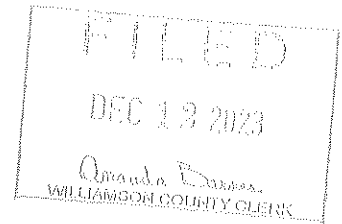 FILED
DEC 19 2023
Amanda
WILLIAMSON COUNTY CLERK